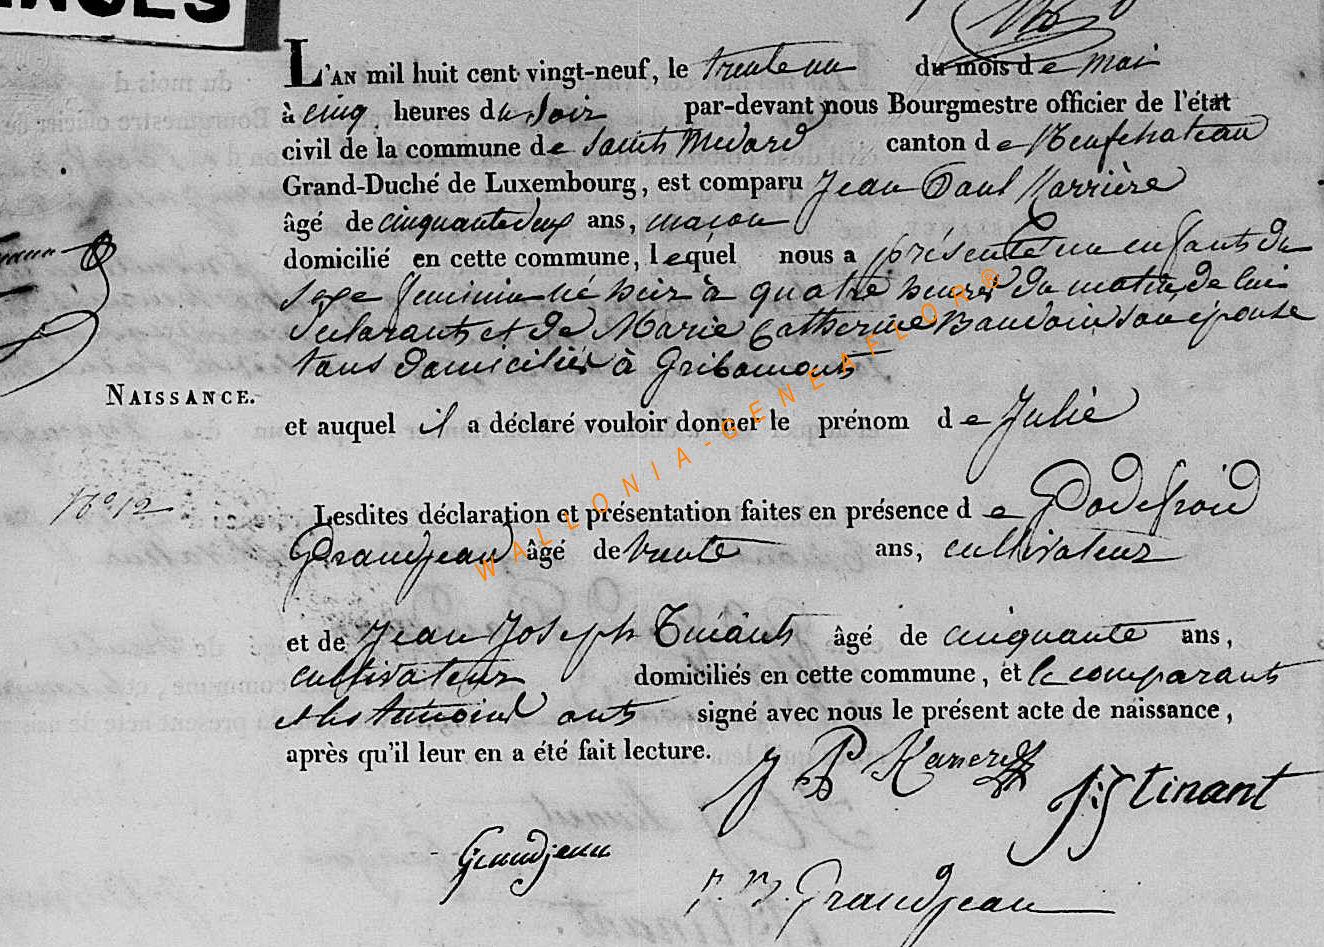 L'AN mil huit cent vingt-neuf, le trente un du mois de mai
à cinq heures du soir par-devant nous Bourgmestre officier de l'état
civil de la commune de Saint Medard canton de Neufchateau
Grand-Duché de Luxembourg, est comparu Jean Paul
âgé de cinquante deux ans, maçon
domicilié en cette commune, lequel nous a présenté un enfant du
sexe feminin né hier à quatre heures du matin, de lui
declarant et de Marie Catherine Baudoin son épouse
tous domiciliés à Gribomont
NAISSANCE.
et auquel il a déclaré vouloir donner le prénom de Julie
N° 12
Lesdites déclaration et présentation faites en présence de Godefroid
Grandjean âgé de trente ans, cultivateur
et de Jean Joseph Tinant âgé de cinquante ans,
cultivateur domiciliés en cette commune, et le comparant
et les temoins ont signé avec nous le présent acte de naissance,
après qu'il leur en a été fait lecture.
J P
J:J tinant
Grandjean
Grandjean
WALLONIA-GENEAFLOR®